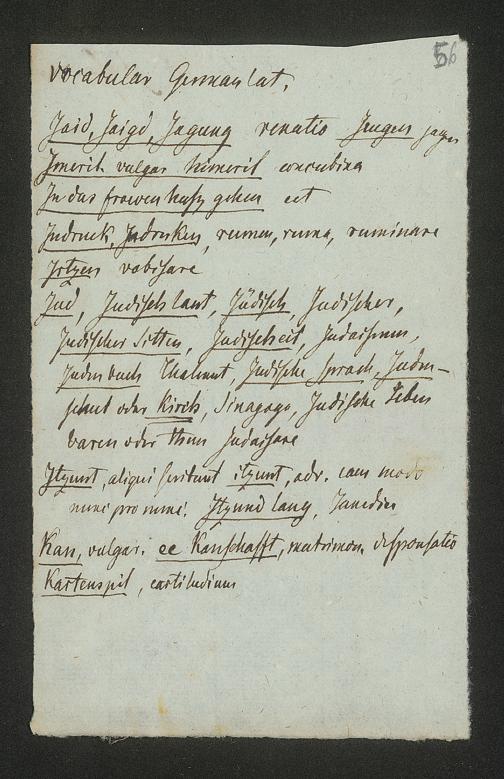 56
Vocabular German lat.
Jaid, Jaigd, Jagung venatio Jaugen jagen
Imerik vulgar kimerik concubina
In das frowen husz gehen
Indruck, Indrucken, rumen, ruma, ruminare
Irtzen vobisare
Jud, Judisch lant, Jüdisch, Judischer,
Judischer Sitten, Judischeit, Judaismus,
Juden buch Thalmut, Judische sprach, Juden-
schul oder Kirch, Sinagoga, Judische Leben
varen oder thun Judaisare
Itzunt, aliqui scribunt itzunt, adv. iam modo
nunc pro nunc. Itzund lang, Jamdiu
Kan, vulgar. ee Kanschafft, matrimon. desponsatio
Kartenspil, cartiludium